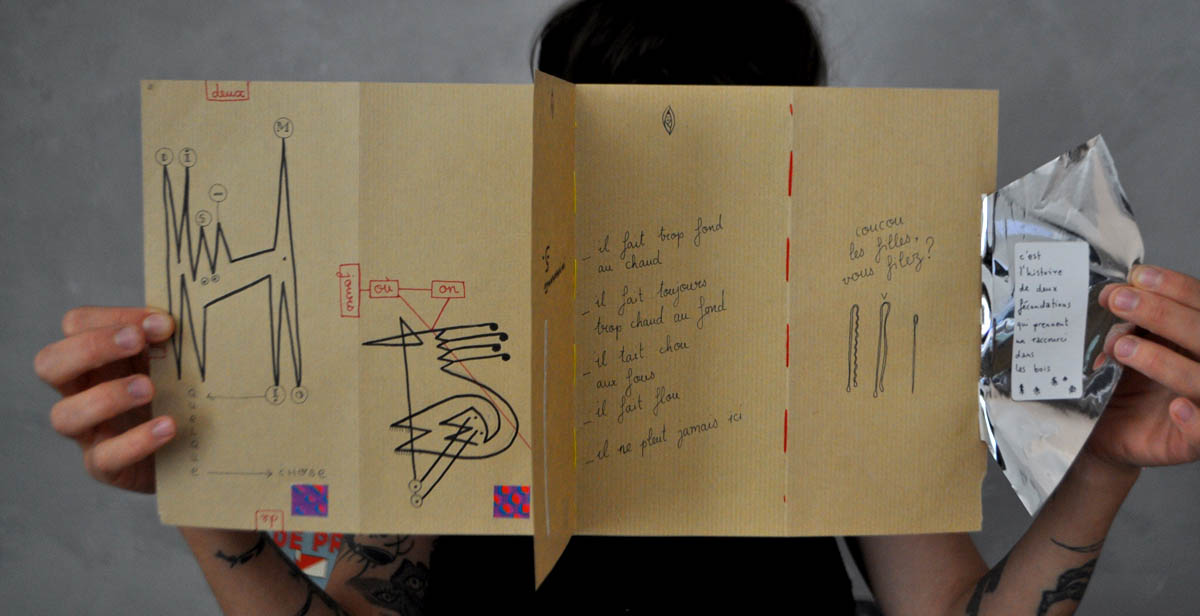 deux
M
I
S
où
on
CHOSE
DE PR
_ il fait trop fond
au chaud
_ il fait toujours
trop chaud au fond
_ il tait chou
aux fous
_ il fait flou
_ il ne pleut jamais ici
coucou
les filles,
vous filez?
c'est
l'histoire
de deux
fécondations
qui prennent
un raccourci
dans
les bois